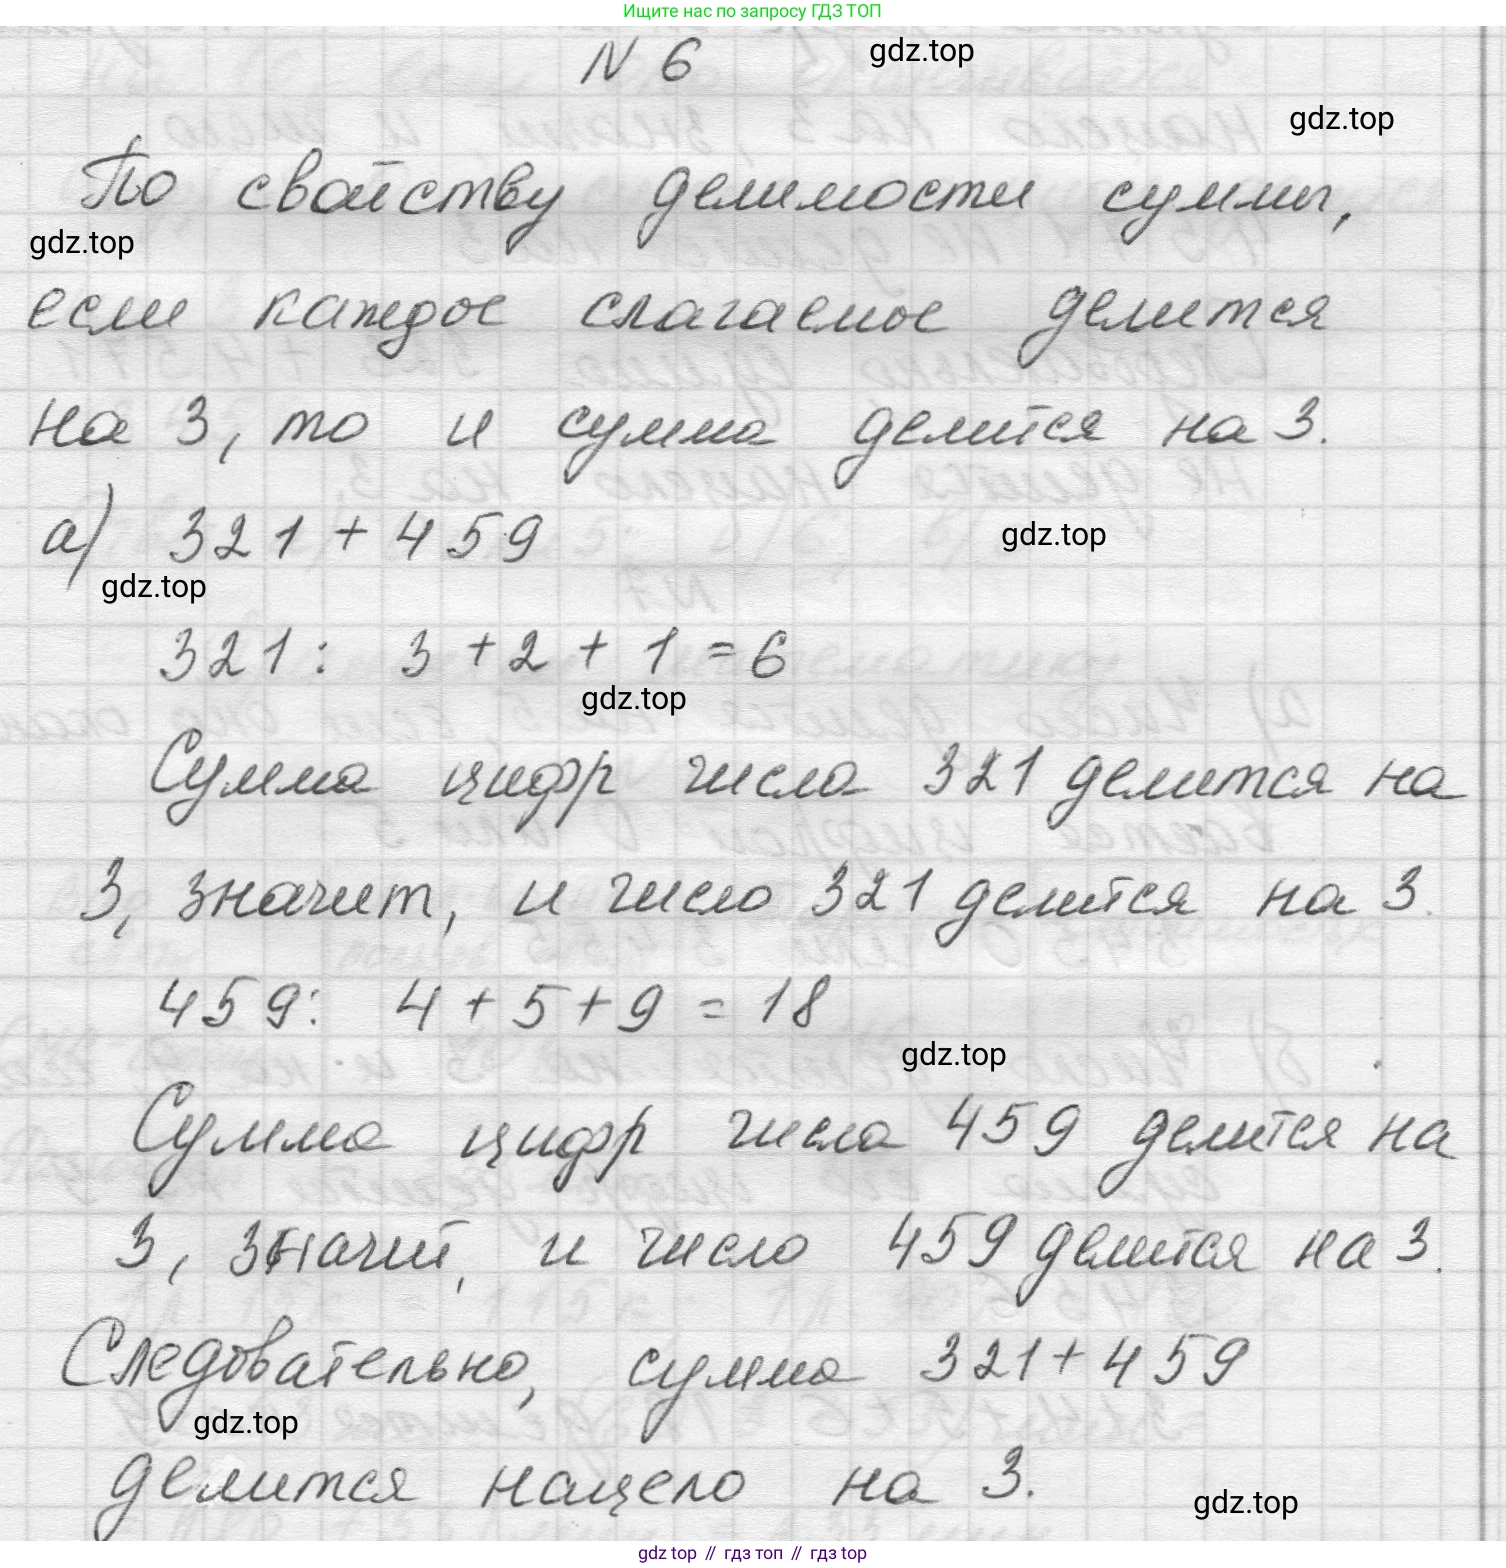 Ищите нас по запросу ГДЗ ТОП
N 6
gdz.top
gdz.top
По свойству делимости суммы,
gdz.top
если каждое слагаемое делится
на 3, то и сумма делится на 3.
а) 321 + 459
gdz.top
gdz.top
321: 3 + 2 + 1 = 6
gdz.top
Сумма цифр числа 321 делится на
3, значит, и число 321 делится на 3.
459: 4 + 5 + 9 = 18
gdz.top
Сумма цифр числа 459 делится на
3, значит, и число 459 делится на 3.
Следовательно, сумма 321 + 459
gdz.top
делится нацело на 3.
gdz.top
gdz top // гдз топ // гдз top